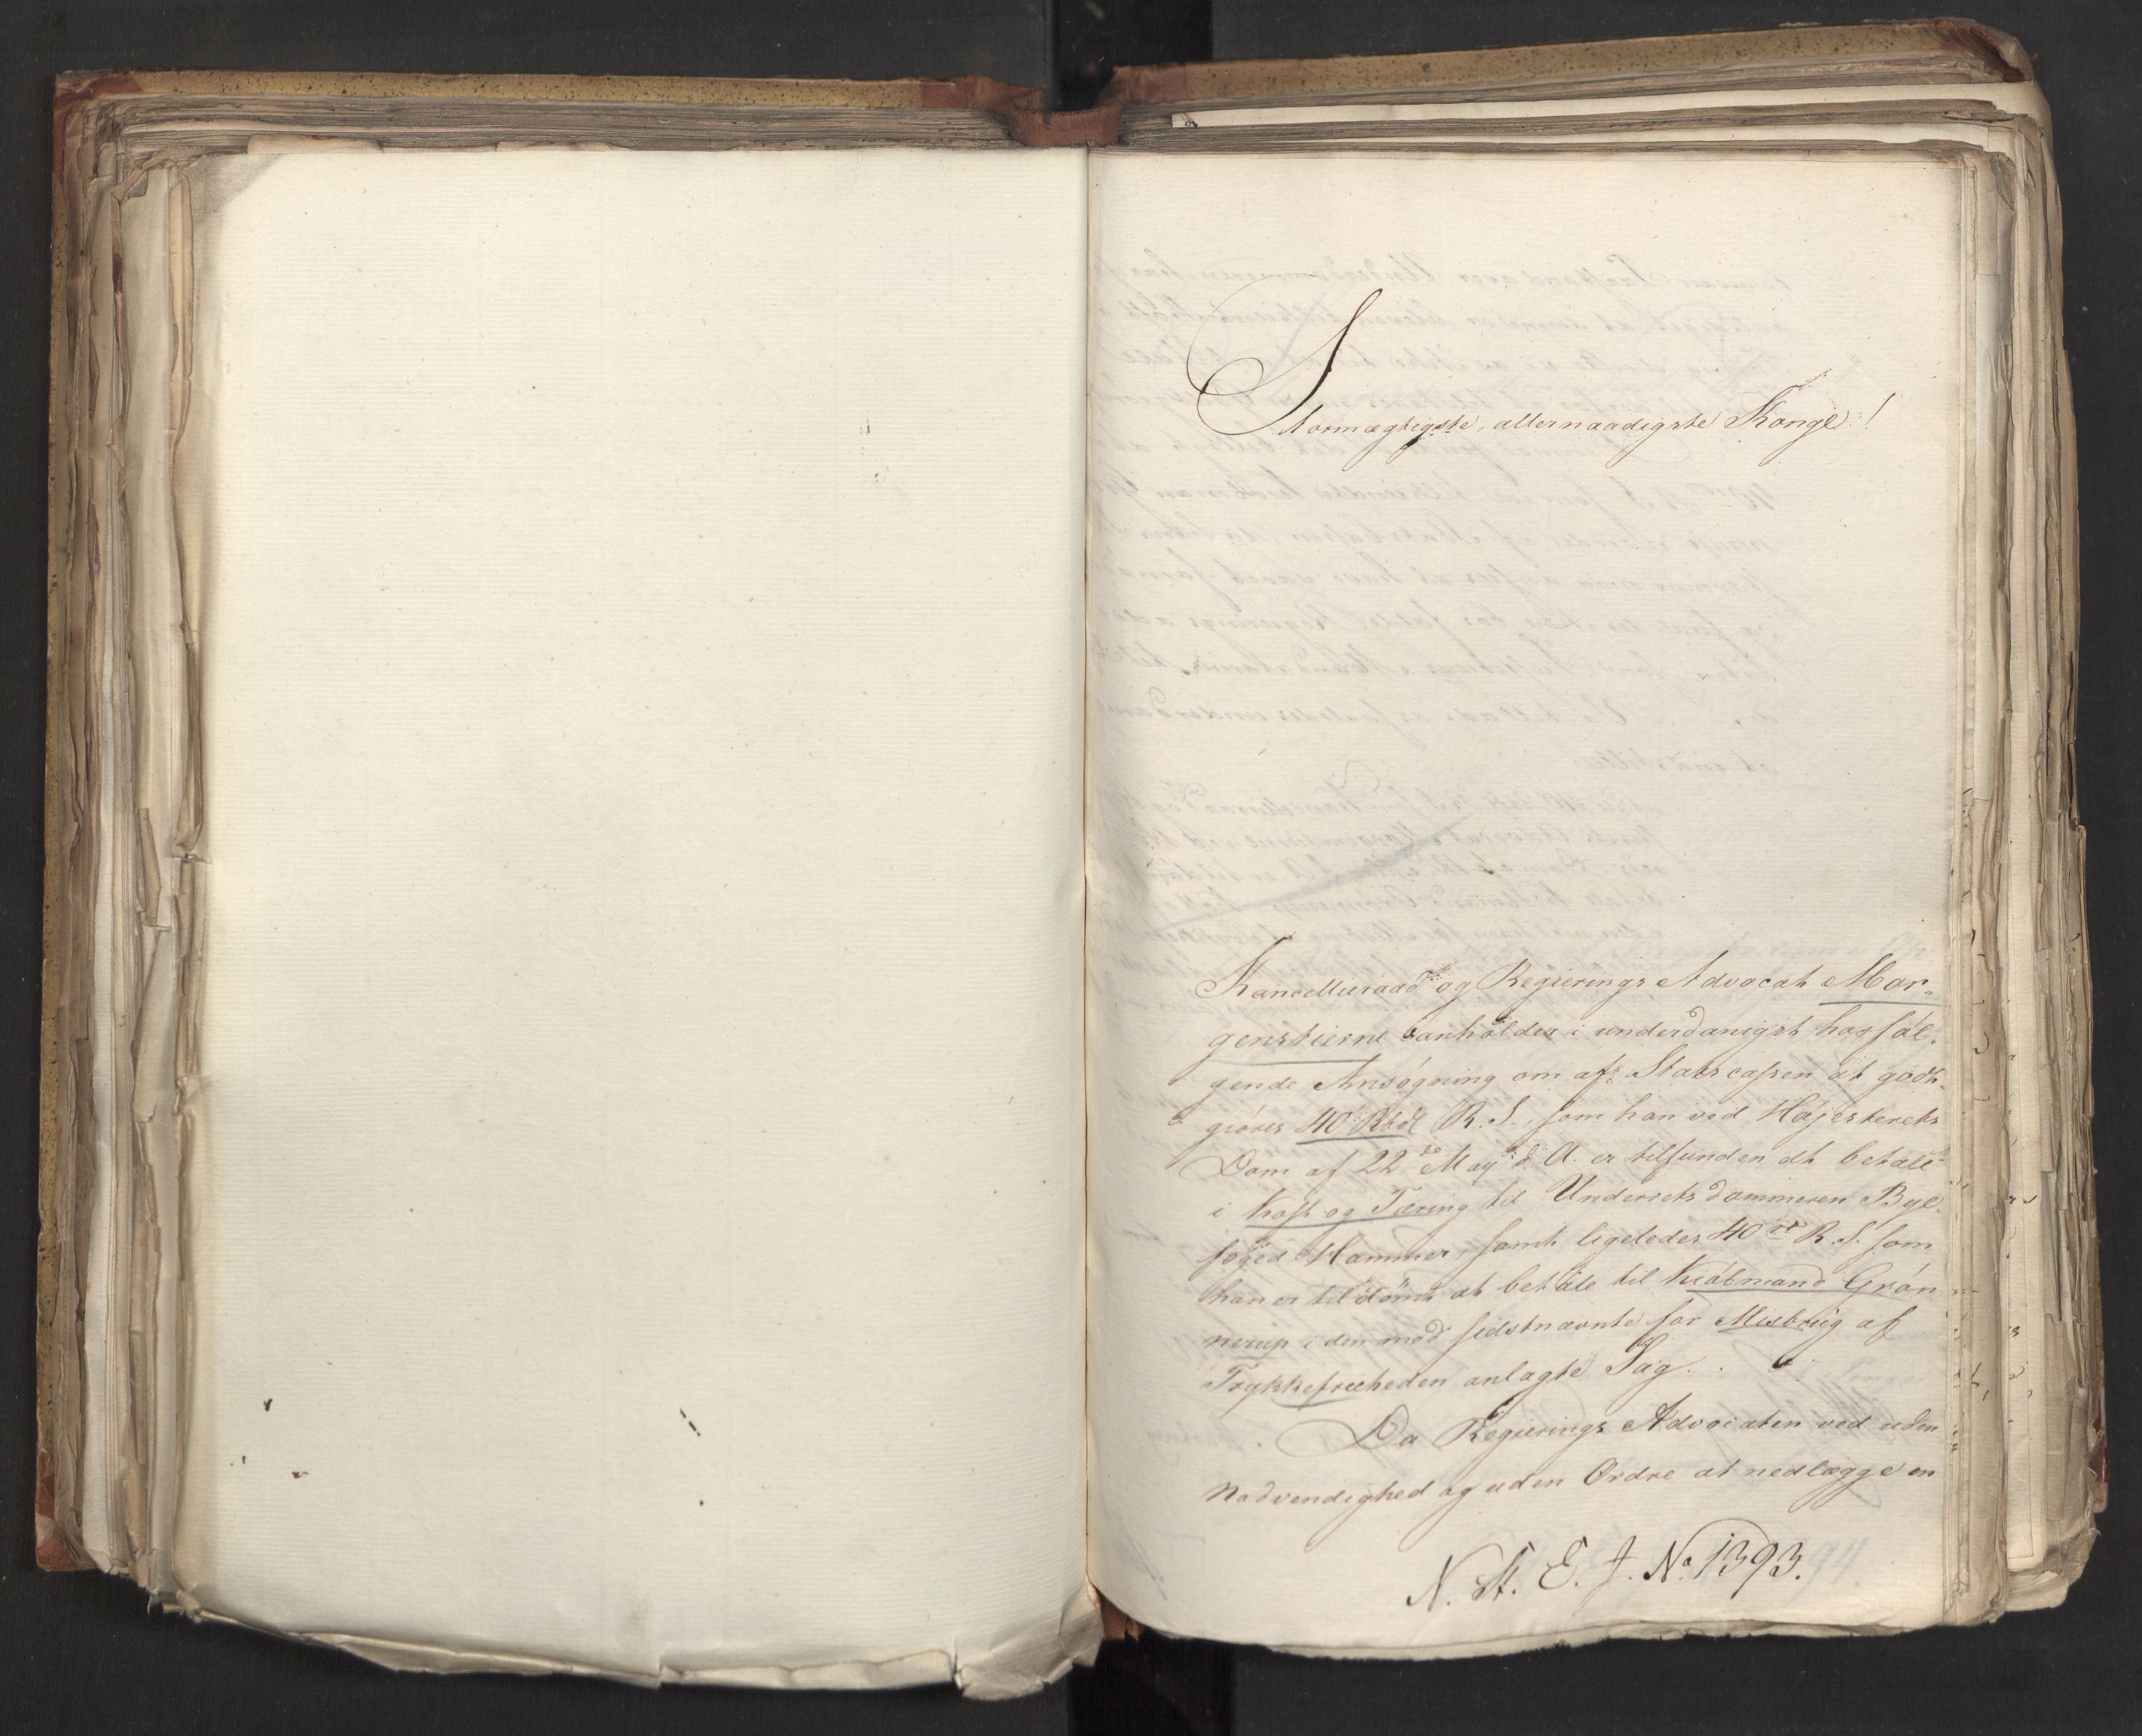 Stormægtigste, allernaadigste Konge!
Kancellieraad og Regierings Advocat Mor-
genstierne anholder i underdanigst hosføl-
gende Ansøgning om af Statscassen at godt-
giøres 40 Rbdl R. S., som han ved Højesterets
Dom af 22de May d. A. er tilfunden at betale
i Kost og Tæring til Underrets dommeren Bye-
foged Hammer, samt ligeledes 40 rd R. S. som
han er tildømt at betale til Kiøbmand Grøn-
nerup i den mod sidstnævnte for Misbrug af
Trykkefriheden anlagte Sag.
Da Regierings Advocaten ved uden
Nødvendighed og uden Ordre at nedlægge en
N. St. E. J. No 1393.